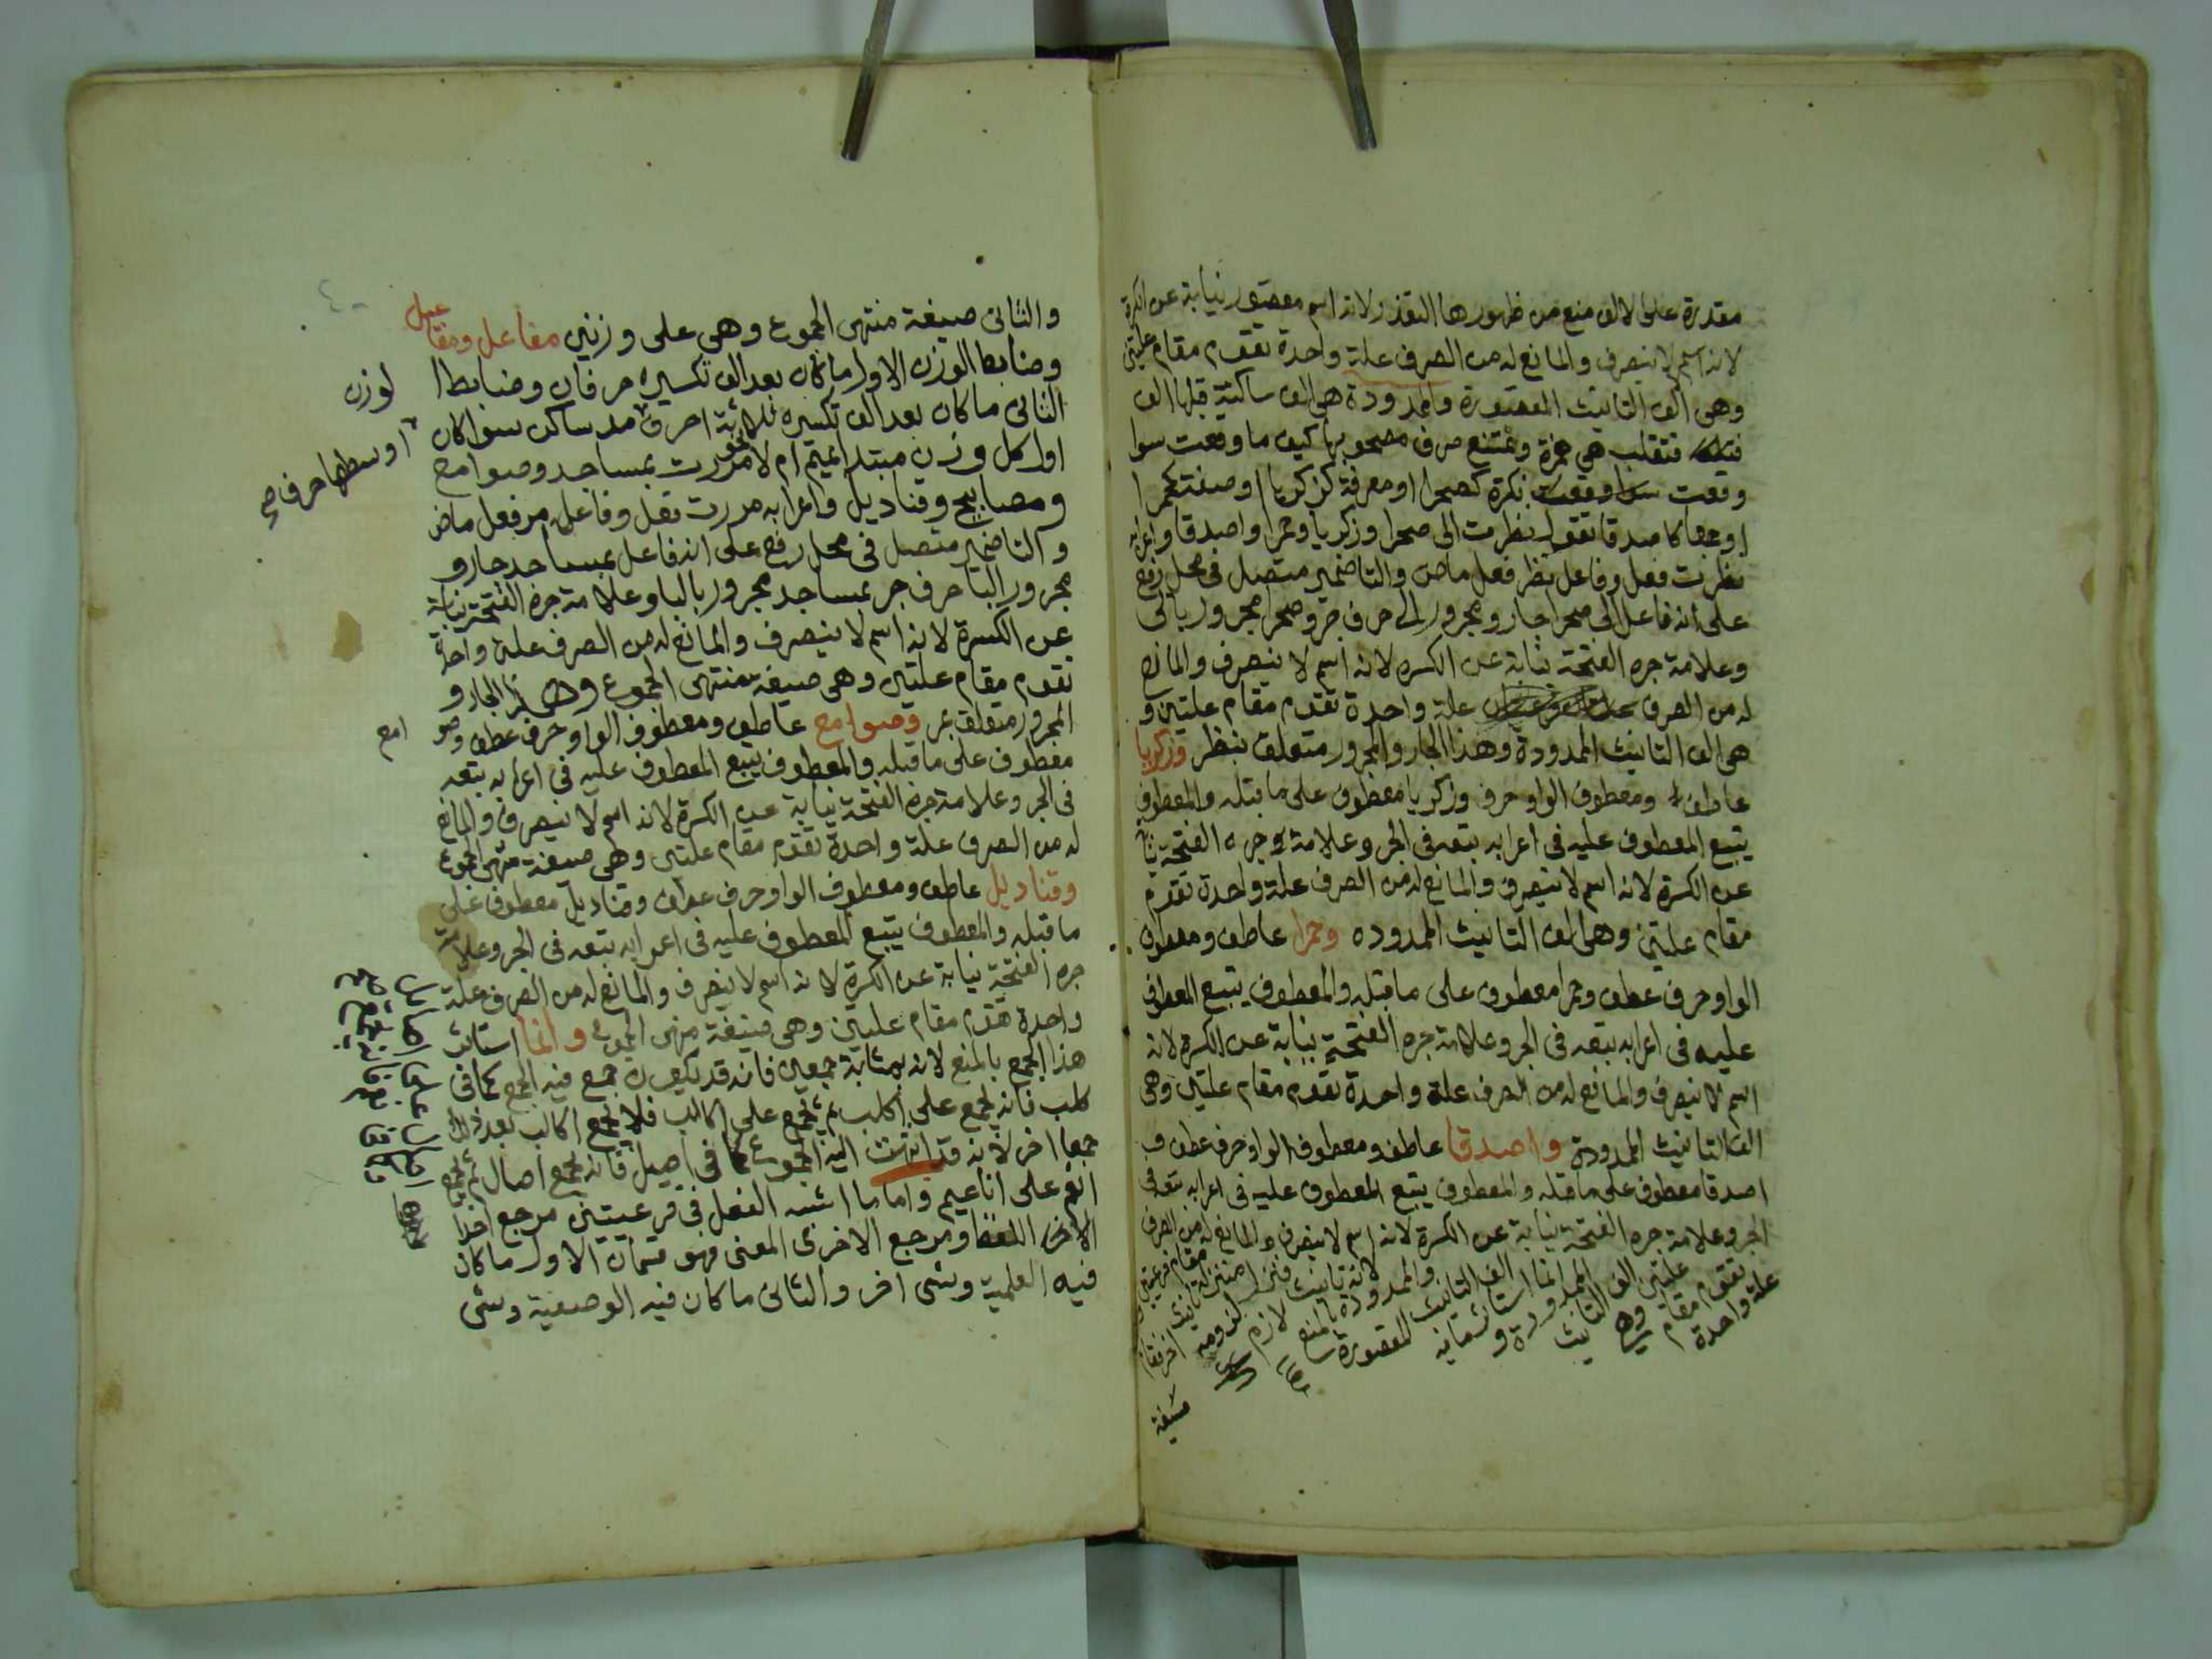 مقدرة على الالف منع من ظهورها التعذر لانه اسم مقصور نيابة عن الكسرة
لانه اسم لا ينصرف والمانع له من الصرف علة واحدة تقوم مقام علتين
وهى الف التانيث المقصورة والممدودة هى الف ساكنة قبلها الف
فتقلب هى همزة ويمتنع صرف مصحوبها كيف ما وقعت سوا
وقعت نكرة كصحرا او معرفة كزكريا او صفة كحمرا
او جمعا كاصدقا تقول نظرت الى صحرا وزكريا وحمرا واصدقا واعرابه
نظرت فعل وفاعل نظر فعل ماض والتا ضمير متصل فى محل رفع
على انه فاعل الى صحرا جار ومجرور الى حرف جر وصحرا مجرور بالى
وعلامة جره الفتحة نيابة عن الكسره لانه اسم لا ينصرف والمانع
له من الصرف علة واحدة تقوم مقام علتين و
هى الف التانيث الممدودة وهذا الجار والمجرور متعلق بنظر وزكريا
عاطف ومعطوف الواو حرف وزكريا معطوف على ما قبله والمعطوف
يتبع المعطوف عليه فى اعرابه تبعه فى الجر وعلامة جره الفتحة نيابة
عن الكسرة لانه اسم لا ينصرف والمانع له من الصرف علة واحدة تقوم
مقام علتين وهى الف التانيث الممدوده وحمرا عاطف ومعطوف
الواو حرف عطف وحمرا معطوف على ما قبله والمعطوف يتبع المعطوف
عليه فى اعرابه تبعه فى الجر وعلامة جره الفتحة نيابة عن الكسرة لانه
اسم لا ينصرف والمانع له من الصرف علة واحدة تقوم مقام علتين وهى
الف التانيث الممدودة واصدقا عاطف ومعطوف الواو حرف عطف و
اصدقا معطوف على ما قبله والمعطوف يتبع المعطوف عليه فى اعرابه تبعه فى
الجر وعلامة جره الفتحة نيابة عن الكسرة لانه اسم لا ينصرف والمانع له من الصرف
علة واحدة تقوم مقام علتين وهى الف التانيث الممدودة وانما استاثر الف التانيث المقصورة والممدودة بالمنع لانه تانيث لازم فنزل لزومه منزلة تانيث اخر فقام مقام فرعيتين
والثانى صيغة منتهى الجموع وهى على وزنين مفاعل ومفاعيل
وضابط الوزن الاول ما كان بعد الف تكسيره حرفان وضابط ا
لوزن
الثانى ما كان بعد الف تكسيره ثلاثة احرف اوسطها حرف مد ساكن سوا كان
اول كل وزن مبتدا بميم ام لا نحو مررت بمساجد وصوامع
ومصابيح وقناديل واعرابه مررت فعل وفاعل مر فعل ماض
والتا ضمير متصل فى محل رفع على انه فاعل بمساجد جار و
مجرور البا حرف جر بمساجد مجرور بالبا وعلامة جره الفتحة نيابة
عن الكسرة لانه اسم لا ينصرف والمانع له من الصرف علة واحدة
تقوم مقام علتين وهى صيغة منتهى الجموع وهذا الجار و
المجرور متعلق بمر وصوامع عاطف ومعطوف الواو حرف عطف وصو
امع
معطوف على ما قبله والمعطوف يتبع المعطوف عليه فى اعرابه تبعه
فى الجر وعلامة جره الفتحة نيابة عن الكسرة لانه اسم لا ينصرف والمانع
له من الصرف علة واحدة تقوم مقام علتين وهى صيغة منتهى الجموع
وقناديل عاطف ومعطوف الواو حرف عطف وقناديل معطوف على
ما قبله والمعطوف يتبع المعطوف عليه فى اعرابه تبعه فى الجر وعلامة
جره الفتحة نيابة عن الكسرة لانه اسم لا ينصرف والمانع له من الصرف علة
واحدة تقوم مقام علتين وهى صيغة منتهى الجموع وانما استاثر
هذا الجمع بالمنع لانه بمثابة جمعين فانه قد يكون جمع فيه الجمع كما فى
كلب فانه يجمع على اكلب ثم يجمع على اكالب فلا يجمع اكالب بعد ذلك
جمعا اخر لانه قد انتهت اليه الجموع كما فى اصيل فانه يجمع اصال ثم يجمع
انعم على اناعيم واما ما اشبه الفعل فى فرعيتين مرجع احدا
الاخر اللفظ ومرجع الاخرى المعنى فهو قسمان الاول ما كان
فيه العلمية وشى اخر والثانى ما كان فيه الوصفية وشى